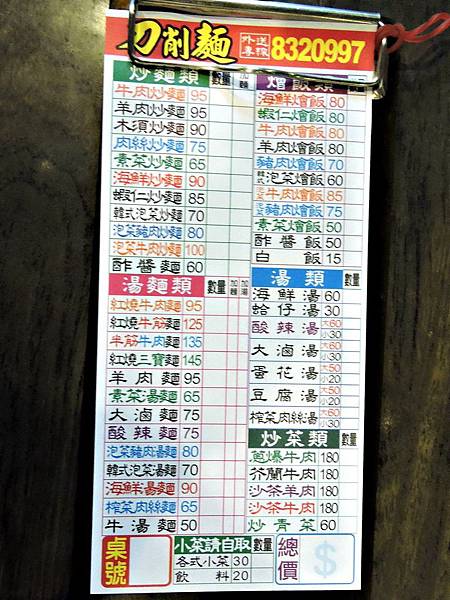 刀削麵 外送專線 8320997
炒麵類 數量 加麵
牛肉炒麵 95
羊肉炒麵 95
木須炒麵 90
肉絲炒麵 75
素菜炒麵 65
海鮮炒麵 90
蝦仁炒麵 85
韓式泡菜炒麵 70
泡菜豬肉炒麵 80
泡菜牛肉炒麵 100
酢醬麵 60
湯麵類 數量 加麵 加湯
紅燒牛肉麵 95
紅燒牛筋麵 125
半筋牛肉麵 135
紅燒三寶麵 145
羊肉麵 95
素菜湯麵 65
大滷麵 75
酸辣麵 75
泡菜豬肉湯麵 80
韓式泡菜湯麵 70
海鮮湯麵 90
榨菜肉絲麵 65
牛湯麵 50
桌號
燴飯類 數量
海鮮燴飯 80
蝦仁燴飯 80
牛肉燴飯 80
羊肉燴飯 80
豬肉燴飯 70
韓式泡菜燴飯 60
泡菜牛肉燴飯 85
泡菜豬肉燴飯 75
素菜燴飯 50
酢醬飯 50
白飯 15
湯類 數量
海鮮湯 60
蛤仔湯 30
酸辣湯 大60 小30
大滷湯 大60 小30
蛋花湯 大50 小20
豆腐湯 大50 小20
榨菜肉絲湯 大60 小30
炒菜類 數量
蔥爆牛肉 180
芥蘭牛肉 180
沙茶羊肉 180
沙茶牛肉 180
炒青菜 60
小菜請自取 數量
各式小菜 30
飲料 20
總價 $